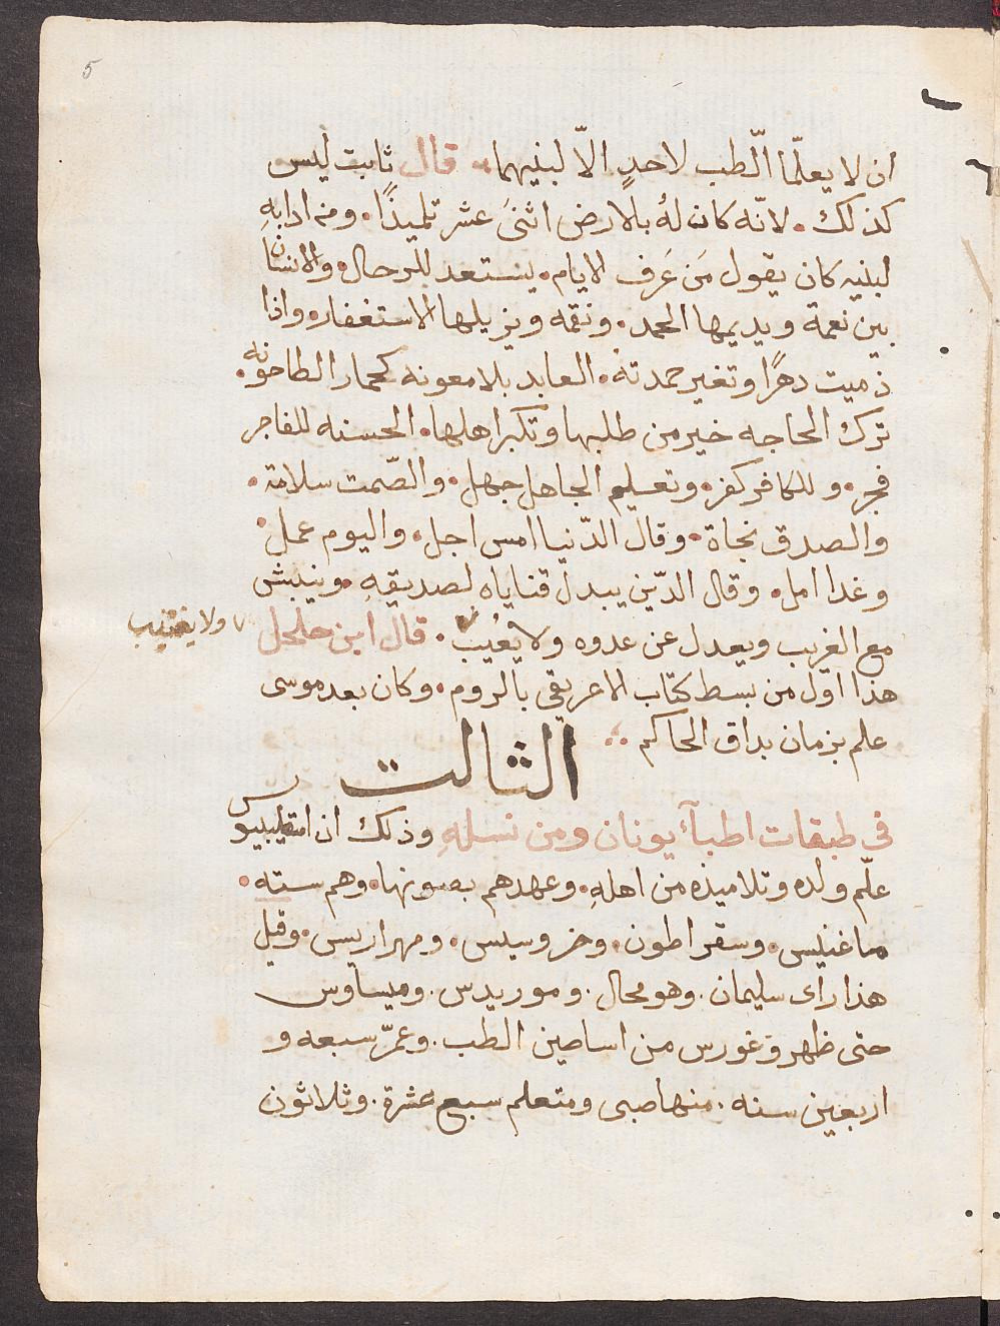 5
ان لا يعلّما الّطب لاحدٍ الاّ لبنيهما. قال ثابت ليس
كذلك. لانّه كان لهُ بالارض اثنىَ عشر تلميذًا. ومن ادابهِ
لبنيه كان يقول مَن عَرف الايام. يستعد للرحال. والانسان
بين نعمة ويديمها الحمد. ونقمه ويزيلها الاستغفار. واذا
ذميت دهرًا وتغير حمدته. العابد بلا معونه كحمار الطاحونه.
ترك الحاجه خير من طلبها وتكبر اهلها. الحسنه للفاجر
فجر. وللكافر كفر. وتعليم الجاهل جهل. والصّمت سلامة.
والصدق نجاة. وقال الدّنيا امس اجل. واليوم عمل.
وغدا امل. وقال الدّين يبدل لصديقهِ. وينبش
مع الغريب ويعدل عن عدوه ولا يَعُيب. قال ابن جلجل
ولا يغيب
هذا اوّل من بسط كتّاب الاغريقي بالروم. وكان بعد موسى
علم بزمان براق الحاكم
الثالت
في طبقات اطبآء يونان ومن نسلهِ وذلك ان اسقليبيوس
علّم ولده وتلاميذه من اهلهِ. وعهدهم بصونها. وهم سته.
ماغنيس. وسقراطون. وخروسيس. ومهراريس. وقيل
هذا راى سليمان. وهو محال. وموريدس. وميساوس
حتى ظهر وغورس من اساطين الطب. وعمّر سبعه و
اربعين سنه. منها صبى ومتعلم سبع عشرة. وثلاثون